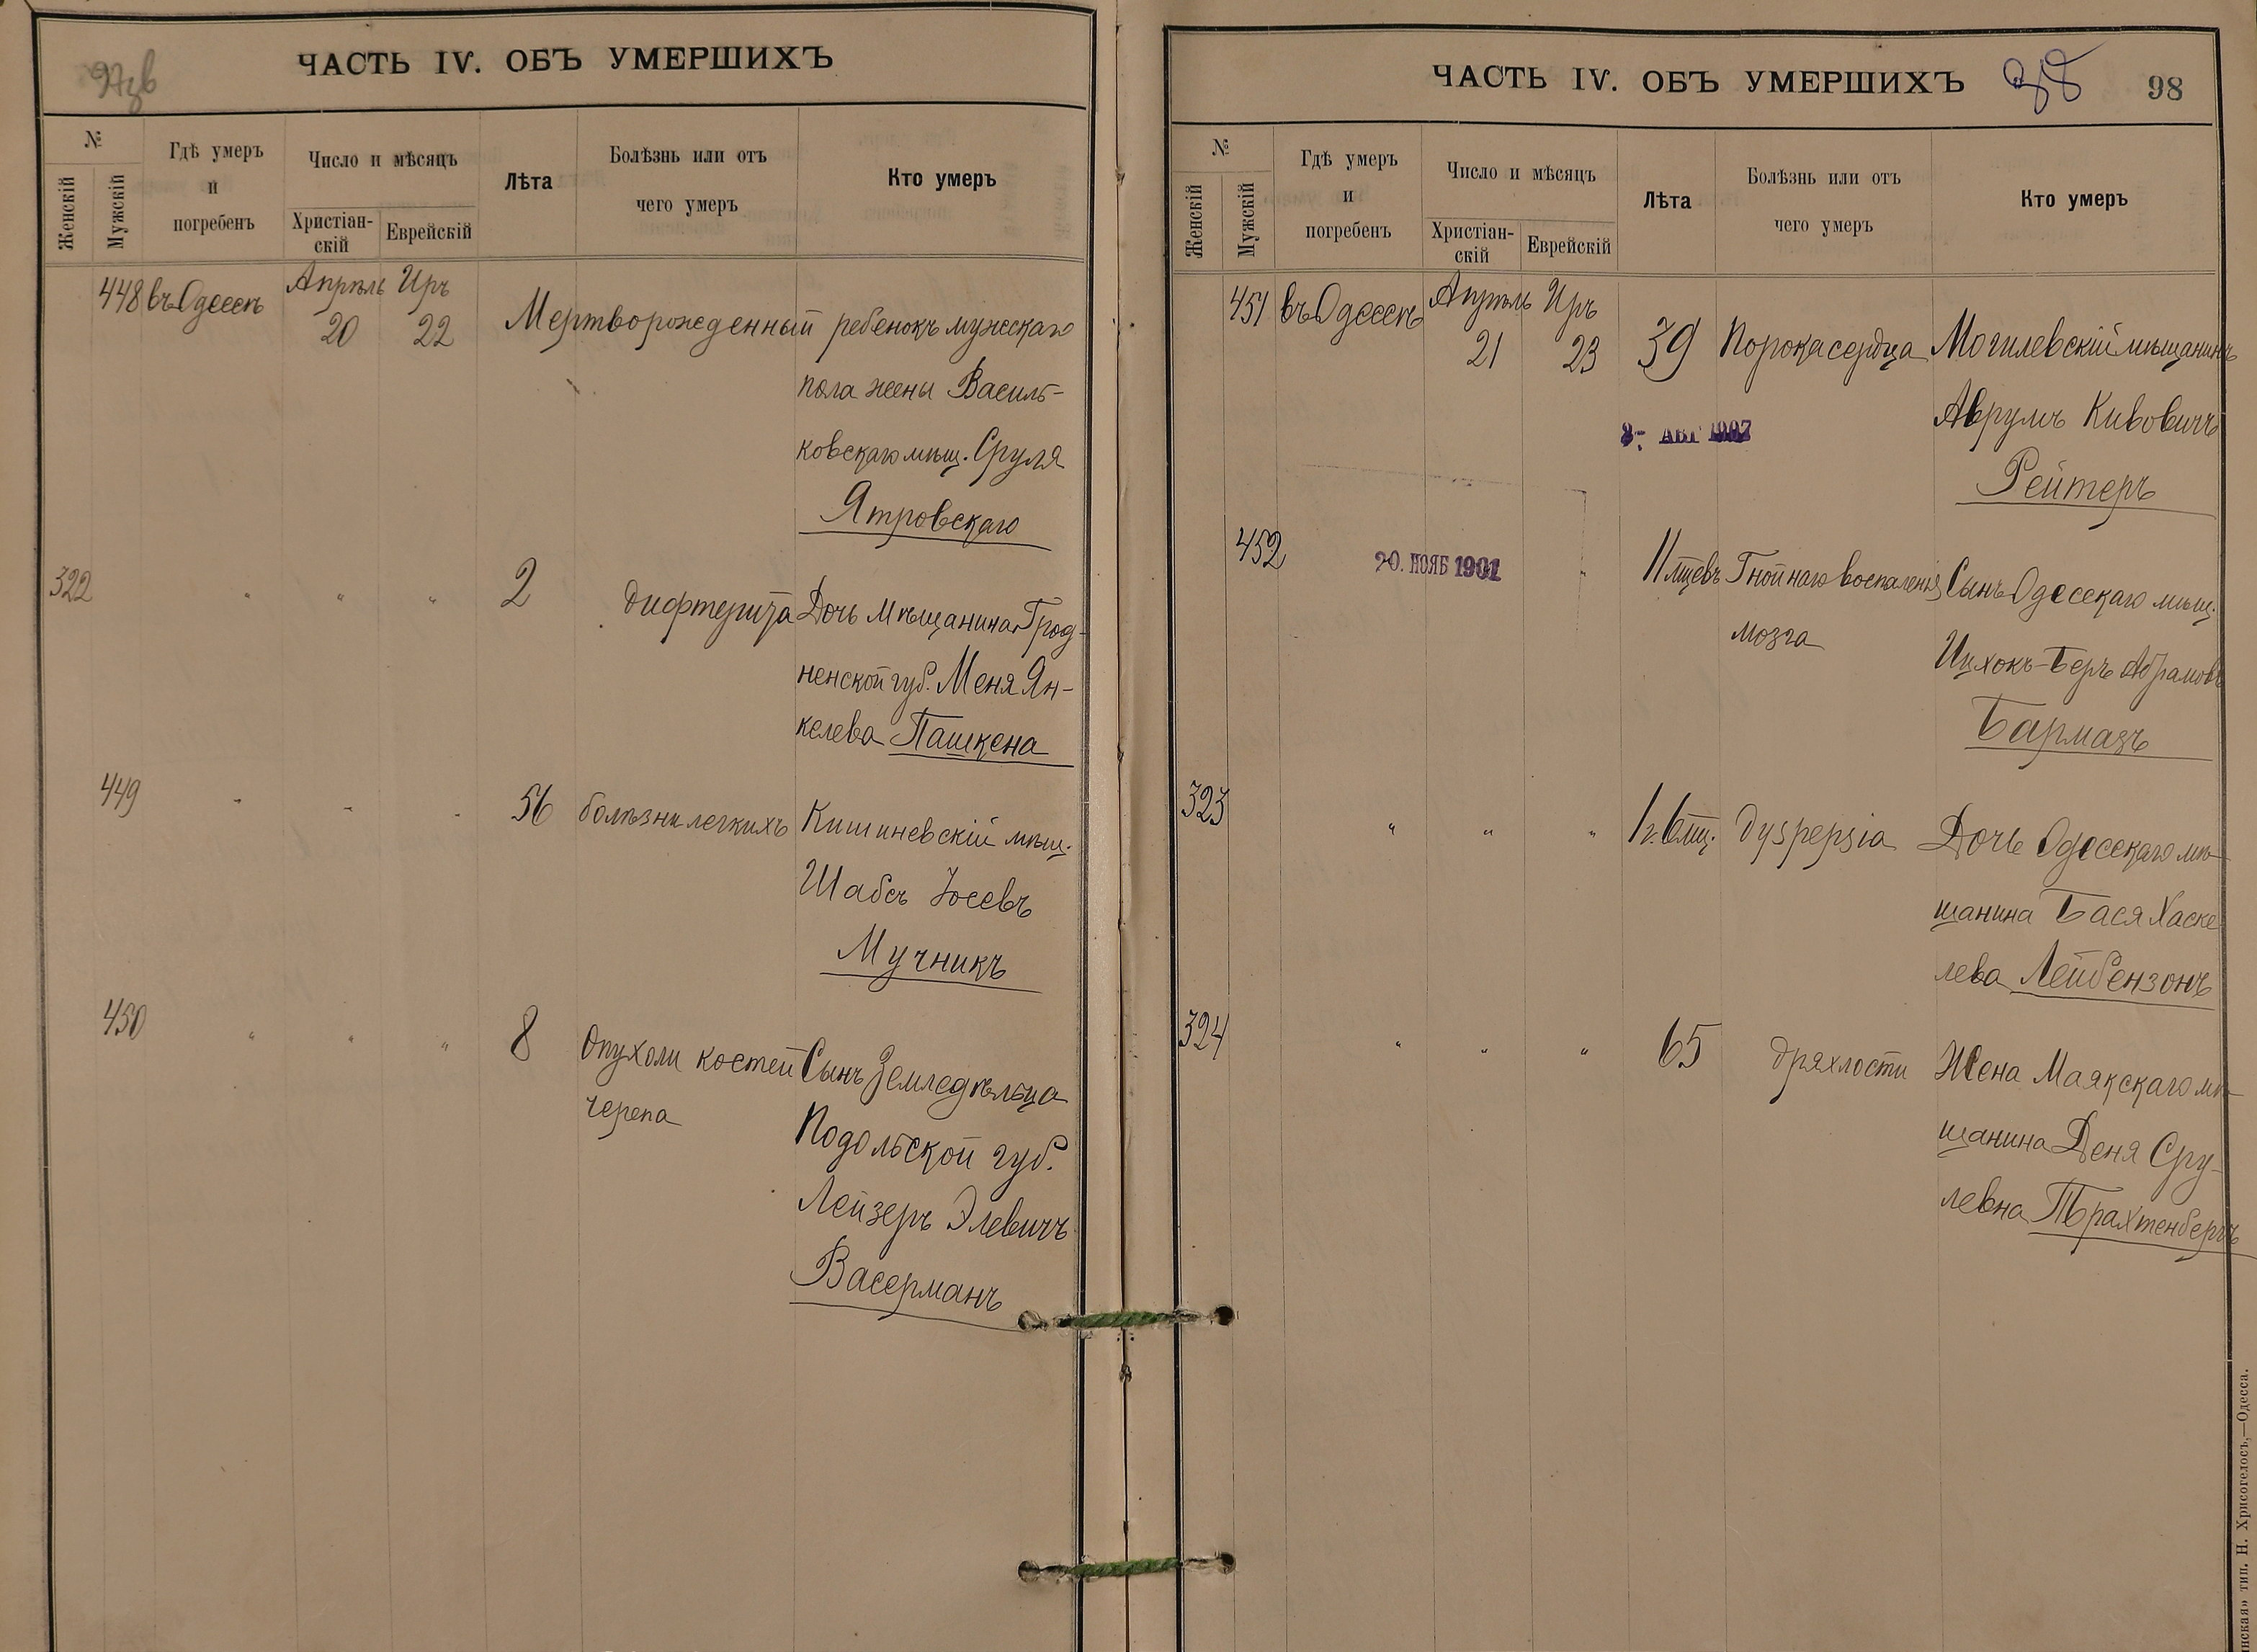 97зв
ЧАСТЬ IV. ОБЪ УМЕРШИХЪ
№
Женскій
Мужскій
Гдѣ умеръ
и
погребенъ
Число и мѣсяцъ
Христіан-
скій
Еврейскій
Лѣта
Болѣзнь или отъ
чего умеръ
Кто умеръ
448 въ Одессѣ Апрѣль Иръ
20 22 Мертворожденный ребенокъ мужескаго
пола жены Василь-
ковскаго мѣщ. Сруля
Ятровскаго
322 " " " 2 дифтерита Дочь мѣщанина Грод-
ненской губ. Меня Ян-
келева Пашкена
449 " " " 56 болѣзни легкихъ Кишиневскій мѣщ.
Шабсъ Іосевъ
Мучникъ
450 " " " 8 Опухоли костей Сынъ Земледѣльца
черепа
Подольской губ.
Лейзеръ Элевичъ
Васерманъ
ЧАСТЬ IV. ОБЪ УМЕРШИХЪ 98
98
№
Женскій
Мужскій
Гдѣ умеръ
и
погребенъ
Число и мѣсяцъ
Христіан-
скій
Еврейскій
Лѣта
Болѣзнь или отъ
чего умеръ
Кто умеръ
451 въ Одессѣ Апрѣль Иръ
21 23 39 Порока сердца Могилевскій мѣщанинъ
Аврумъ Кивовичъ
АВГ 1907
Рейтеръ
452 20. НОЯБ 1901 11 мцевъ Гнойнаго воспаленія Сынъ Одесскаго мѣщ.
мозга
Ицхокъ-Беръ Абрамовъ
Бармазъ
323 " " " 1 г. 6 мц. dyspepsia Дочь Одесскаго мѣ-
щанина Бася Хаске
лева Лейбензонъ
324 " " " 65 дряхлости Жена Маякскаго мѣ-
щанина Деня Сру-
левна Трахтенбергъ
тип. Н. Хрисогелосъ,—Одесса.